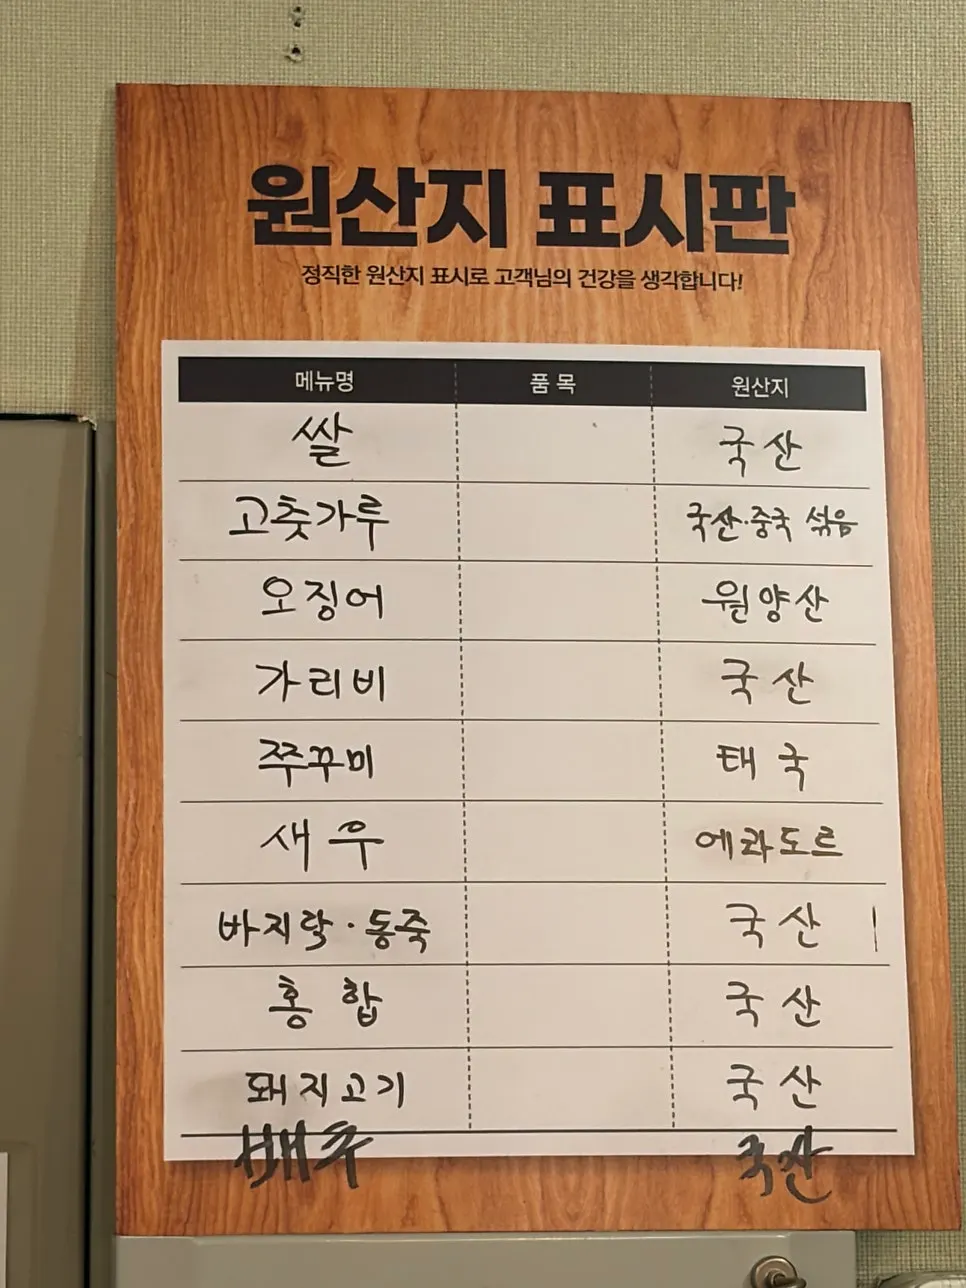 원산지 표시판
정직한 원산지 표시로 고객님의 건강을 생각합니다!
메뉴명 품목 원산지
쌀 국산
고춧가루 국산·중국 섞음
오징어 원양산
가리비 국산
쭈꾸미 태국
새우 에콰도르
바지락·동죽 국산
홍합 국산
돼지고기 국산
배추 국산